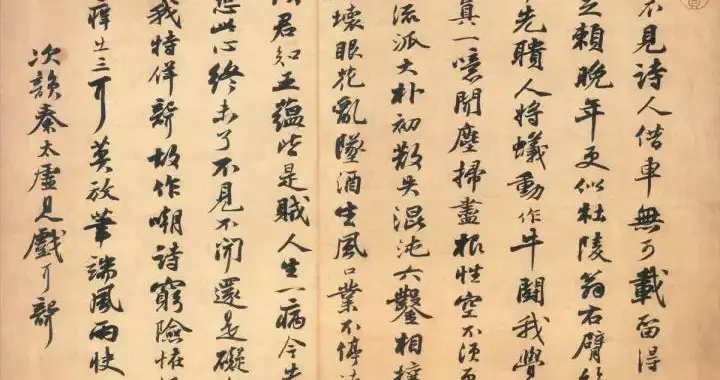 不見詩人借車無可載留得
足賴晚年更似杜陵翁右臂
先聵人將蟻動作牛鬪我覺
真一噫聞塵掃盡根性空不須更
流派大朴初散失混沌六鑿相攘
壞眼花亂墜酒生風口業不停
君知五蘊皆是賊人生一病今先
恐此心終未了不見不聞還是礙
我特佯聾故作嘲詩窮險怪
癢出三耳莫放筆端風雨快
次韻秦太虛見戲耳聾